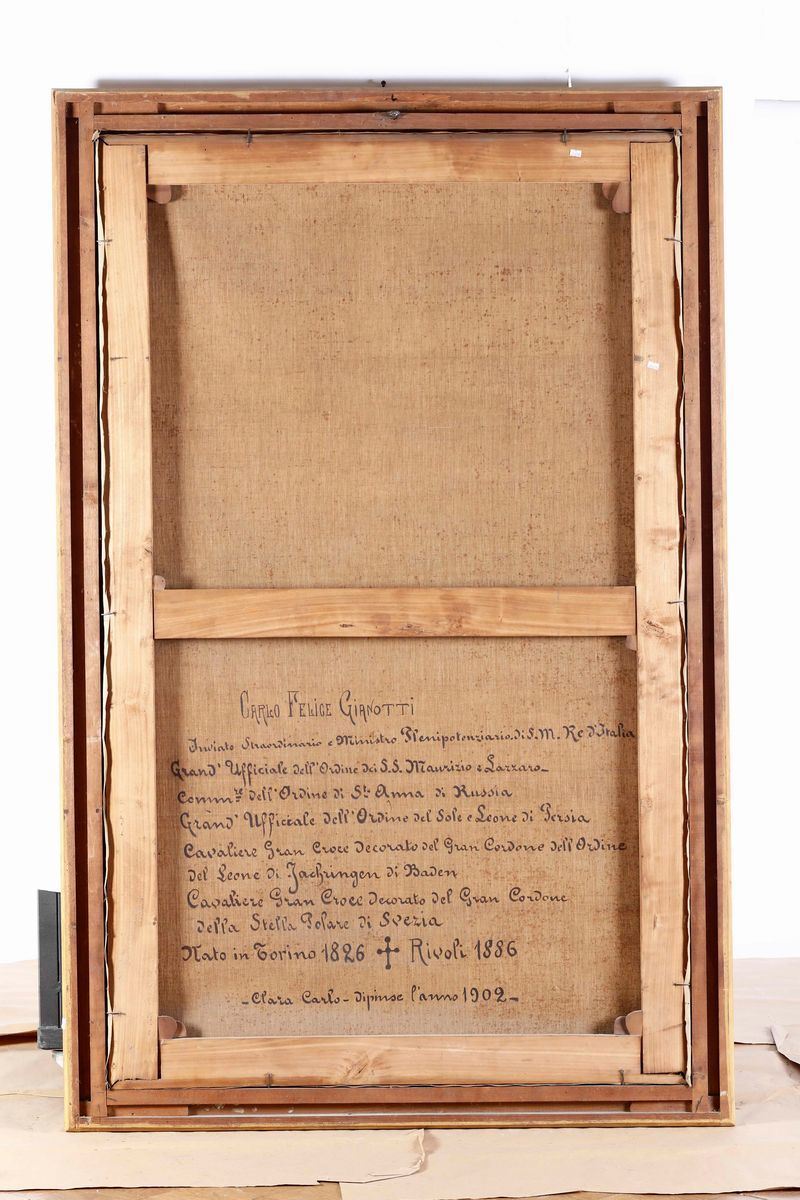 Carlo Felice Gianotti
Inviato Straordinario e Ministro Plenipotenziario di S.M. Re d'Italia
Grand' Ufficiale dell'Ordine dei S.S. Maurizio e Lazzaro_
Comm.re dell'Ordine di St. Anna di Russia
Grand' Ufficiale dell'Ordine del Sole e Leone di Persia
Cavaliere Gran Croce decorato del Gran Cordone dell'Ordine
del Leone di Jachringen di Baden
Cavaliere Gran Croce decorato del Gran Cordone
della Stella Polare di Svezia
Nato in Torino 1826 ✢ Rivoli 1886
_Clara Carlo_dipinse l'anno 1902_